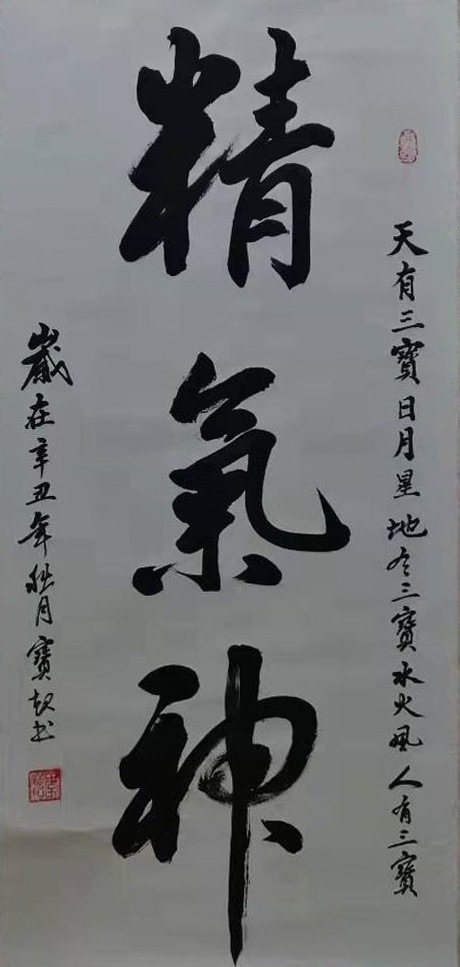 天有三寳日月星地有三寳水火風人有三寳
精氣神
歲在辛丑年秋月寳起书